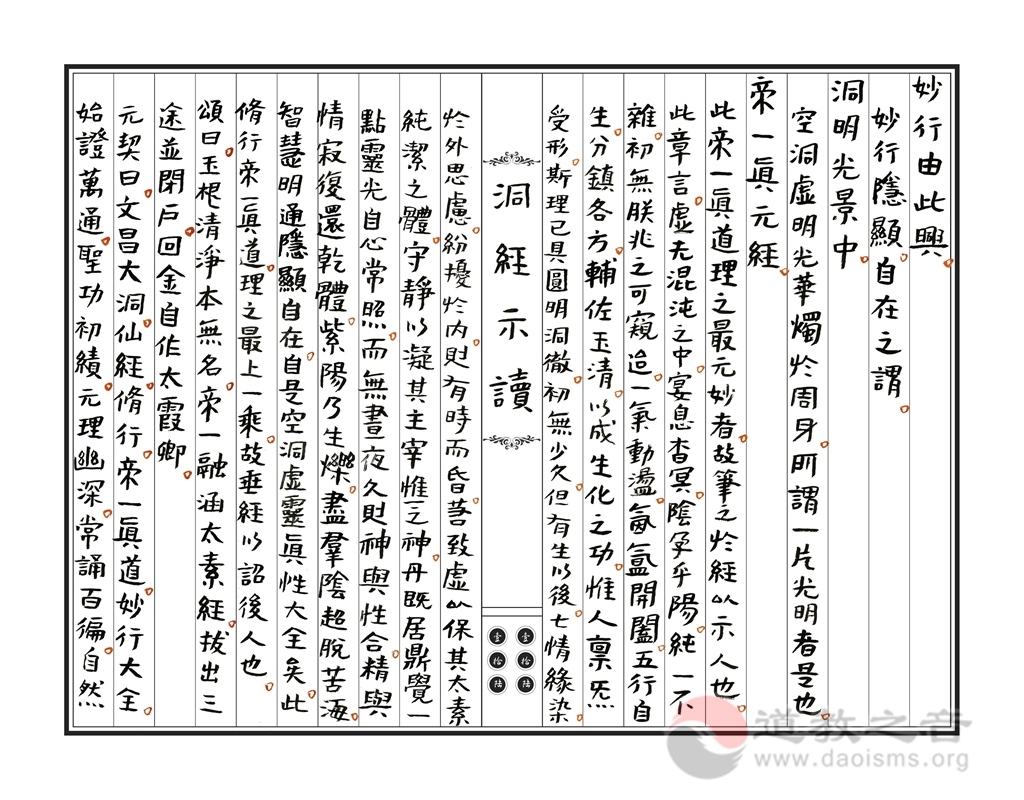 妙行由此興
妙行隱顯自在之謂
洞明光景中
空洞虛明光華燭於周身所謂一片光明者是也
帝一眞元經
此帝一眞道理之最元妙者故筆之於經以示人也
此章言虛无混沌之中宴息杳冥陰孕乎陽純一不
雜初無朕兆之可窺迨一氣動盪氤氳開闔五行自
生分鎮各方輔佐玉清以成生化之功惟人禀炁
受形斯理已具圓明洞徹初無少欠但有生以後七情緣染
洞經示讀
壹拾陸
壹拾陸
於外思慮紛擾於内則有時而昏菩致虛以保其太素
純潔之體守靜以凝其主宰惟之神丹既居鼎覺一
點靈光自心常照而無晝夜久則神與性合精與
情寂復還乾體紫陽乃生爍盡羣陰超脫苦海
智慧明通隱顯自在自是空洞虛靈眞性大全矣此
脩行帝一眞道理之最上一乘故垂經以詔後人也
頌曰玉根清淨本無名帝一融涵太素經拔出三
途並閉戶回金自作太霞卿
元契曰文昌大洞仙經脩行帝一眞道妙行大全
始證萬通聖功初績元理幽深常誦百徧自然
道教之音
www.daoisms.org